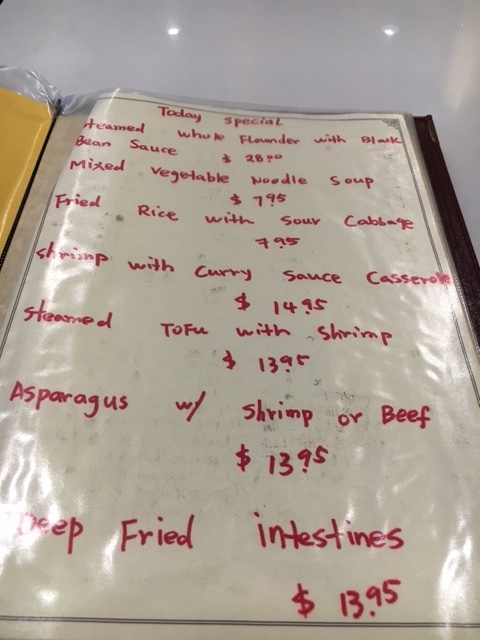 Today special
steamed whole Flounder with Black
Bean Sauce $ 28.00
Mixed vegetable Noodle Soup
$ 7.95
Fried Rice with Sour Cabbage
7.95
shrimp with Curry Sauce Casserole
$ 14.95
Steamed TOFU with Shrimp
$ 13.95
Asparagus w/ Shrimp or Beef
$ 13.95
Deep Fried intestines
$ 13.95